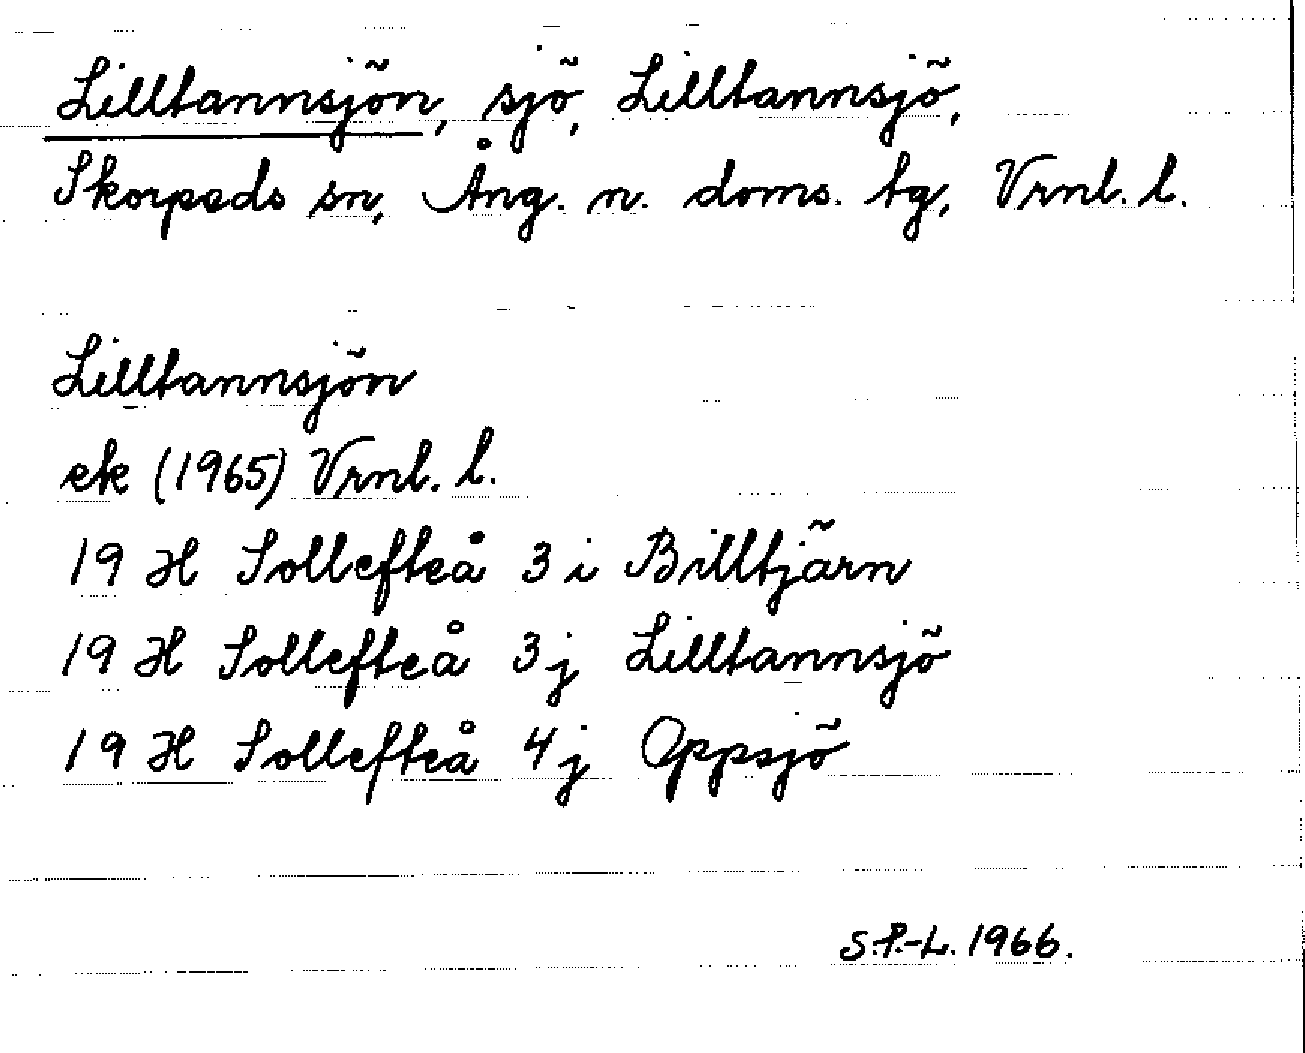 Lilltannsjön, sjö, Lilltannsjö,
Skorpeds sn, Ång. n. doms. tg, Vrnl. l.
Lilltannsjön
ek (1965) Vrnl. l.
19 H Sollefteå 3 i Billtjärn
19 H Sollefteå 3 j Lilltannsjö
19 H Sollefteå 4 j Oppsjö
S.P.-L. 1966.